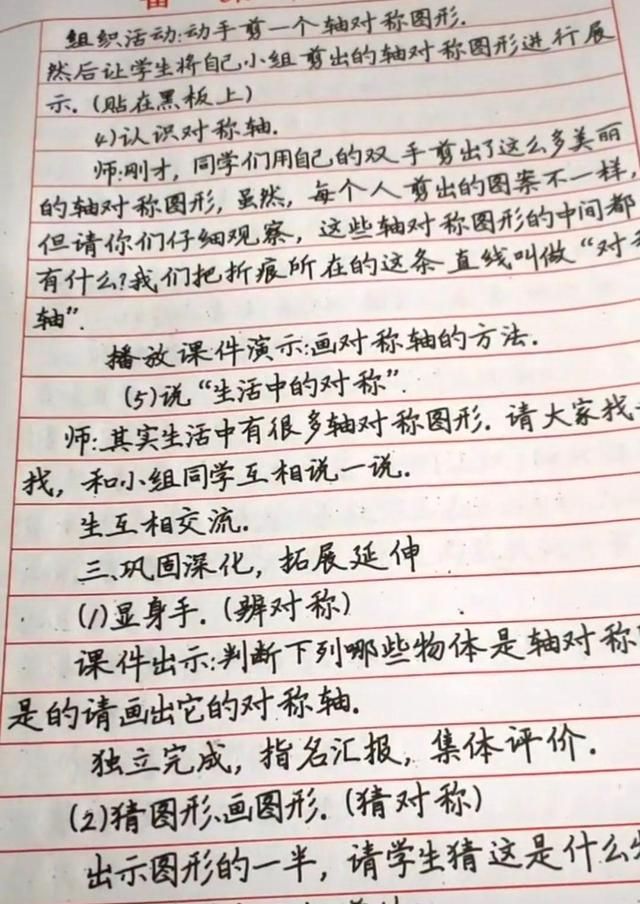 组织活动:动手剪一个轴对称图形.
然后让学生将自己小组剪出的轴对称图形进行展
示.(贴在黑板上)
4)认识对称轴.
师:刚才,同学们用自己的双手剪出了这么多美丽
的轴对称图形,虽然,每个人剪出的图案不一样,
但请你们仔细观察,这些轴对称图形的中间都
有什么?我们把折痕所在的这条直线叫做“对
轴”.
播放课件演示:画对称轴的方法.
(5)说“生活中的对称”.
师:其实生活中有很多轴对称图形.请大家找
找,和小组同学互相说一说.
生互相交流.
三.巩固深化,拓展延伸
(1)显身手.(辨对称)
课件出示:判断下列哪些物体是轴对称
是的请画出它的对称轴.
独立完成,指名汇报,集体评价.
(2)猜图形、画图形.(猜对称)
出示图形的一半,请学生猜这是什么